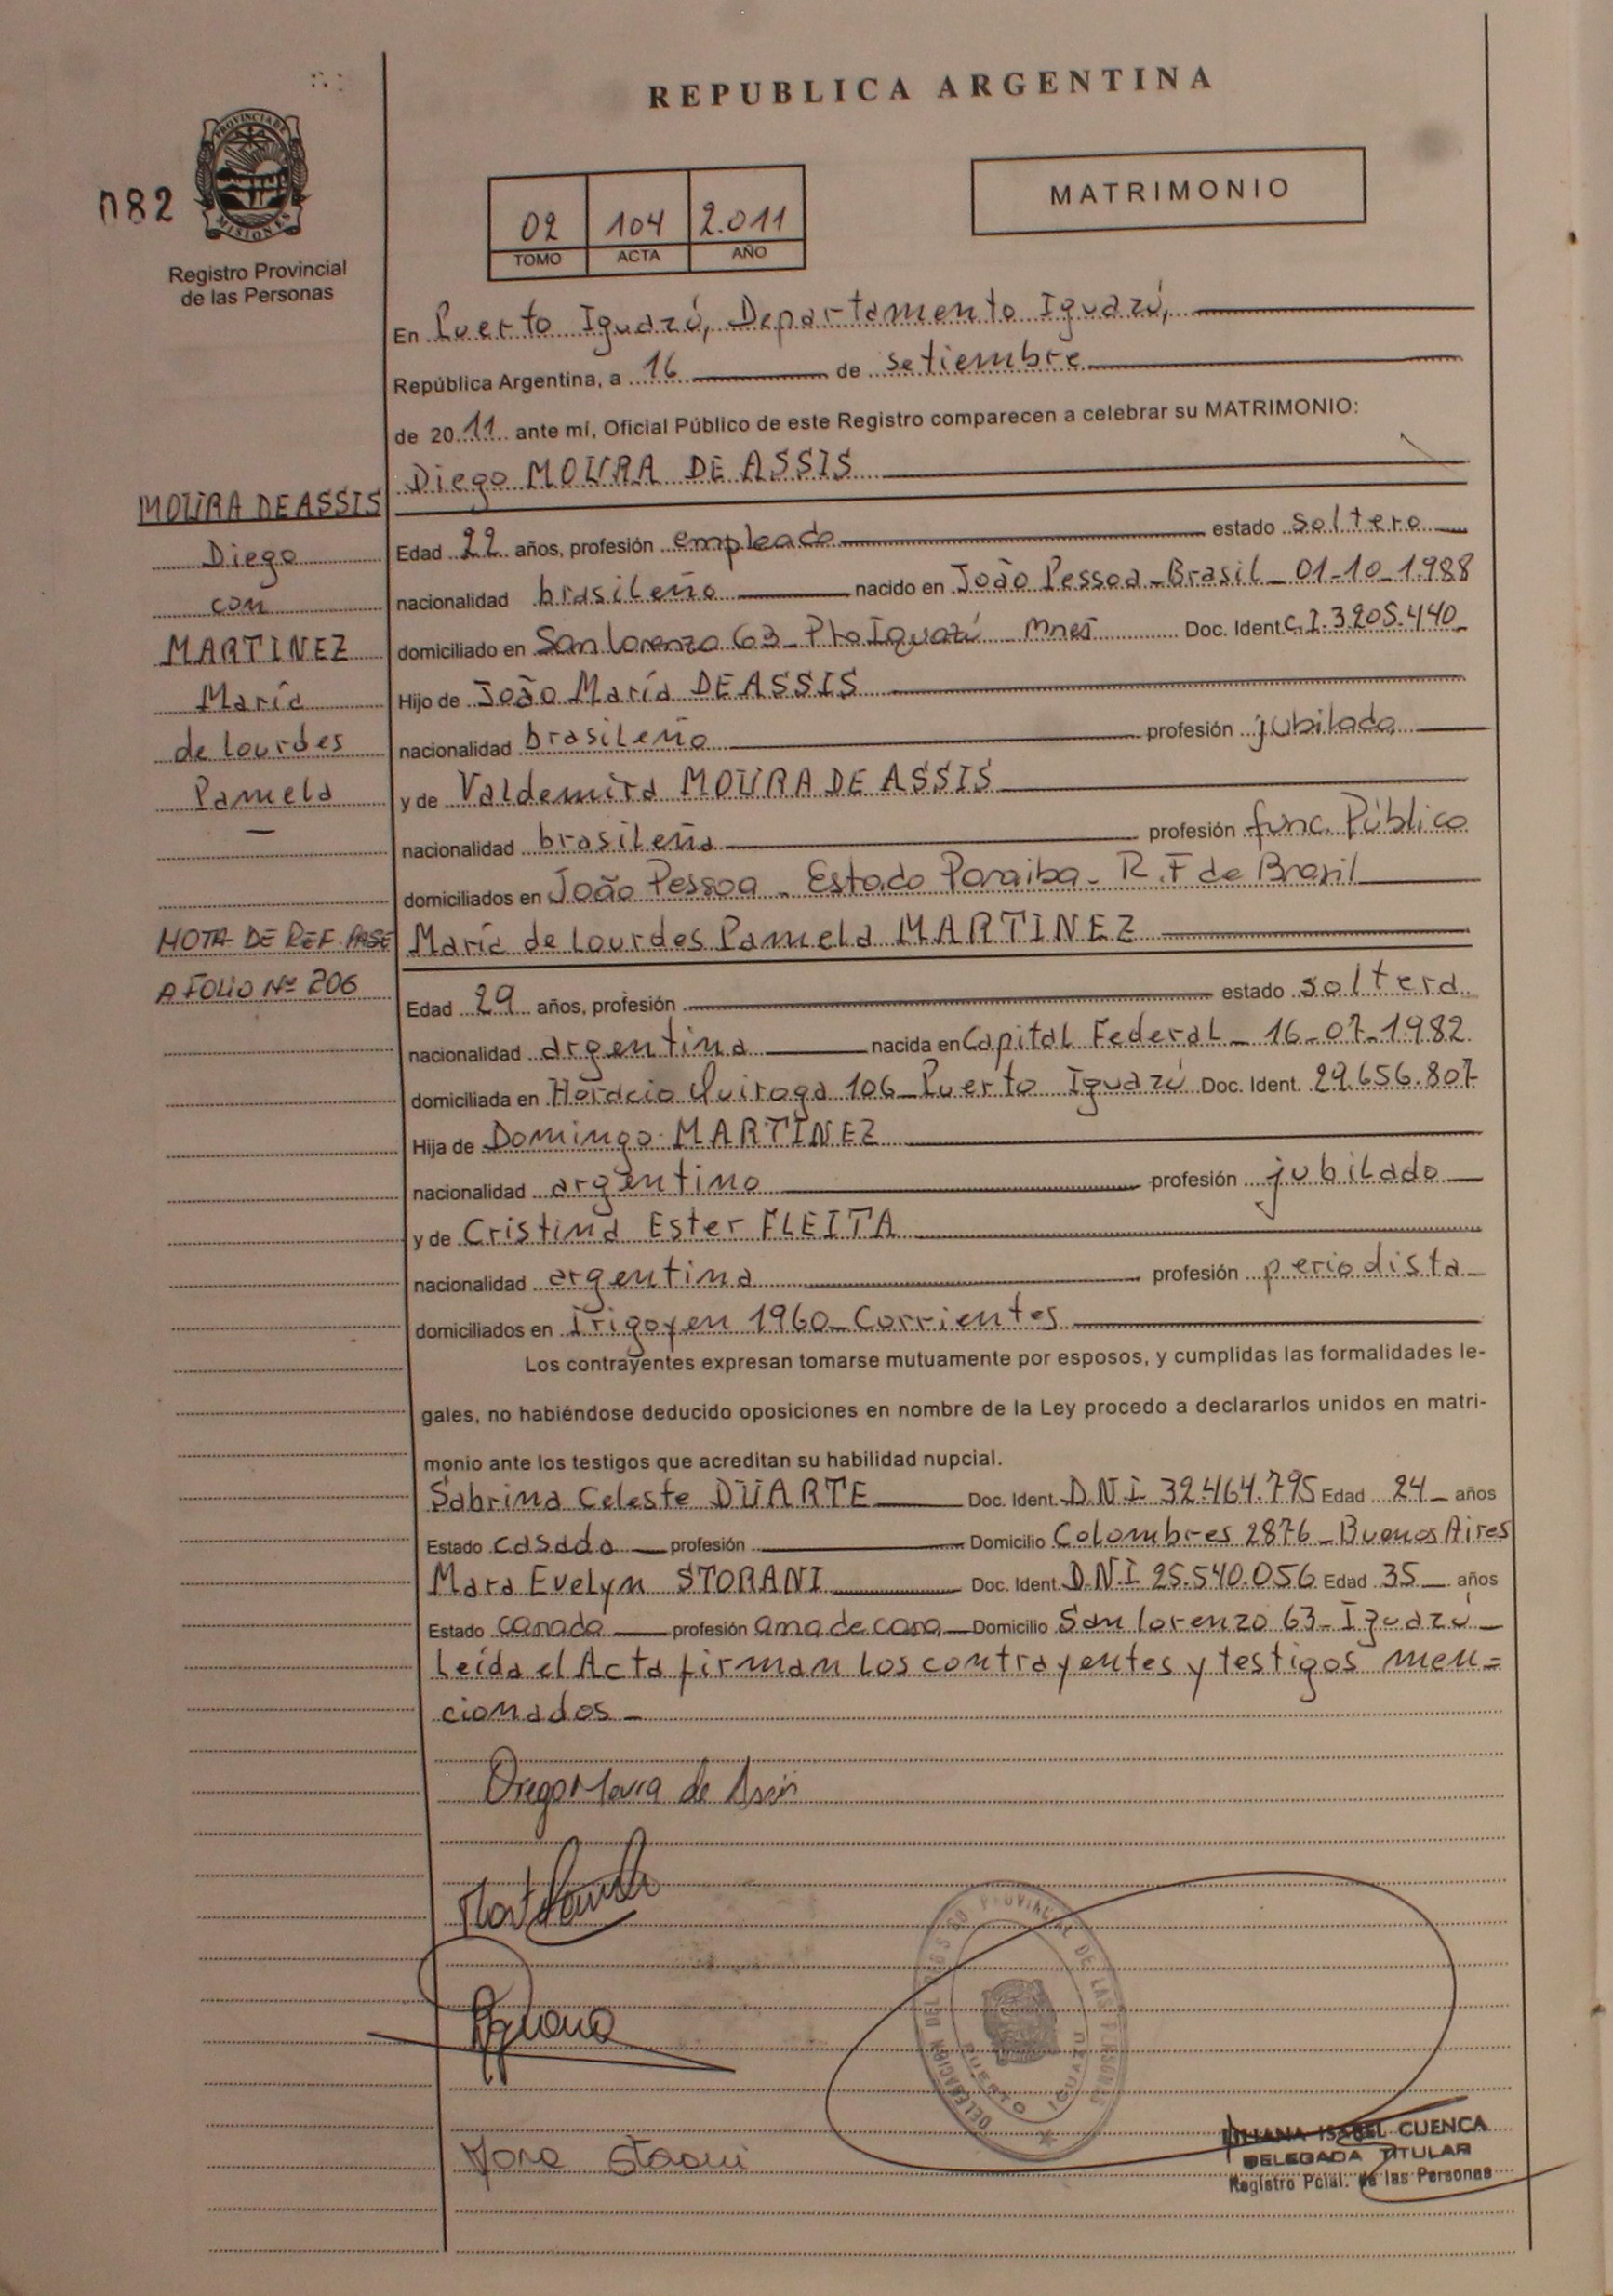 REPUBLICA ARGENTINA
082
PROVINCIA DE
MISIONES
Registro Provincial
de las Personas
02 104 2.011
TOMO ACTA AÑO
MATRIMONIO
En Puerto Iguazú, Departamento Iguazú,
República Argentina, a 16 de setiembre
de 2011 ante mí, Oficial Público de este Registro comparecen a celebrar su MATRIMONIO:
Diego MOURA DE ASSIS
MOURA DE ASSIS
Diego
con
MARTINEZ
María
de Lourdes
Pamela
NOTA DE REF. PASE
A FOLIO Nº 206
Edad 22 años, profesión empleado estado soltero
nacionalidad brasileño nacido en João Pessoa - Brasil - 01-10-1988
domiciliado en San Lorenzo 63 - Pto Iguazú Mnes Doc. Ident. C.I. 3.205.440
Hijo de João María DE ASSIS
nacionalidad brasileño profesión jubilado
y de Valdemira MOURA DE ASSIS
nacionalidad brasileña profesión func. Público
domiciliados en João Pessoa - Estado Paraiba - R.F de Brasil
María de Lourdes Pamela MARTINEZ
Edad 29 años, profesión estado soltera
nacionalidad argentina nacida en Capital Federal - 16-07-1982
domiciliada en Horacio Quiroga 106 - Puerto Iguazú Doc. Ident. 29.656.807
Hija de Domingo MARTINEZ
nacionalidad argentino profesión jubilado
y de Cristina Ester FLEITA
nacionalidad argentina profesión periodista
domiciliados en Irigoyen 1960 - Corrientes
Los contrayentes expresan tomarse mutuamente por esposos, y cumplidas las formalidades le-
gales, no habiéndose deducido oposiciones en nombre de la Ley procedo a declararlos unidos en matri-
monio ante los testigos que acreditan su habilidad nupcial.
Sabrina Celeste DUARTE Doc. Ident. D.N.I 32.464.795 Edad 24 años
Estado casada profesión Domicilio Colombres 2876 - Buenos Aires
Mara Evelyn STORANI Doc. Ident. D.N.I 25.540.056 Edad 35 años
Estado casada profesión ama de casa Domicilio San Lorenzo 63 - Iguazú
Leída el Acta firman los contrayentes y testigos men=
cionados -
Diego Moura de Assis
DELEGACION DEL REGISTRO PROVINCIAL DE LAS PERSONAS
PUERTO IGUAZU
LILIANA ISABEL CUENCA
DELEGADA TITULAR
Registro Pcial. de las Personas